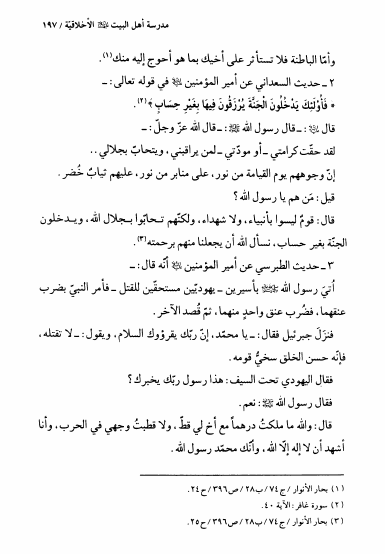 مدرسة أهل البيت ﷺ الأخلاقيّة / ١٩٧
وأمّا الباطنة فلا تستأثر على أخيك بما هو أحوج إليه منك(١).
٢ ـ حديث السعداني عن أمير المؤمنين ﷺ في قوله تعالى: ـ
﴿ فَأُوْلَئِكَ يَدْخُلُونَ الْجَنَّةَ يُرْزَقُونَ فِيهَا بِغَيْرِ حِسَابٍ ﴾(٢).
قال ﷺ: ـ قال رسول الله ﷺ: ـ قال الله عزّ وجلّ: ـ
لقد حقّت كرامتي ـ أو مودّتي ـ لمن يراقبني، ويتحابّ بجلالي..
إنّ وجوههم يوم القيامة من نور، على منابر من نور، عليهم ثيابٌ خُضر.
قيل: مَن هم يا رسول الله؟
قال: قومٌ ليسوا بأنبياء، ولا شهداء، ولكنّهم تـحابّوا بـجلال الله، ويـدخلون
الجنّة بغير حساب، نسأل الله أن يجعلنا منهم برحمته(٣).
٣ ـ حديث الطبرسي عن أمير المؤمنين ﷺ أنّه قال: ـ
أُتيَ رسول الله ﷺ بأسيرين ـ يهوديّين مستحقّين للقتل ـ فأمر النبيّ بضرب
عنقهما، فضُرب عنق واحدٍ منهما، ثمّ قُصد الآخر.
فنزَلَ جبرئيل فقال: ـ يا محمّد، إنّ ربّك يقرؤوك السلام، ويقول: ـ لا تقتله،
فإنّه حسن الخلق سخيُّ قومه.
فقال اليهودي تحت السيف: هذا رسول ربّك يخبرك؟
فقال رسول الله ﷺ: نعم.
قال: والله ما ملكتُ درهماً مع أخ لي قطّ، ولا قطبتُ وجهي في الحرب، وأنا
أشهد أن لا إله إلّا الله، وأنّك محمّد رسول الله.
(١) بحار الأنوار / ج٧٤ / ب٢٨ / ص٣٩٦ / ح٢٤.
(٢) سورة غافر: الآية ٤٠.
(٣) بحار الأنوار / ج٧٤ / ب٢٨ / ص٣٩٦ / ح٢٥.